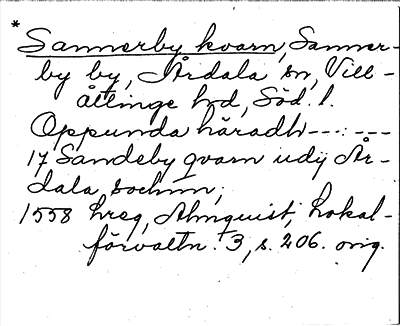 * Sannerby kvarn, Sanner-
by by, Årdala sn, Vill-
åttinge hd, Söd. l.
Oppunda häradh---:---
17 Sandeby qvarn udij År-
dala sochnn;
1558 hreg, Almquist, Lokal-
förvaltn. 3, s. 206. orig.